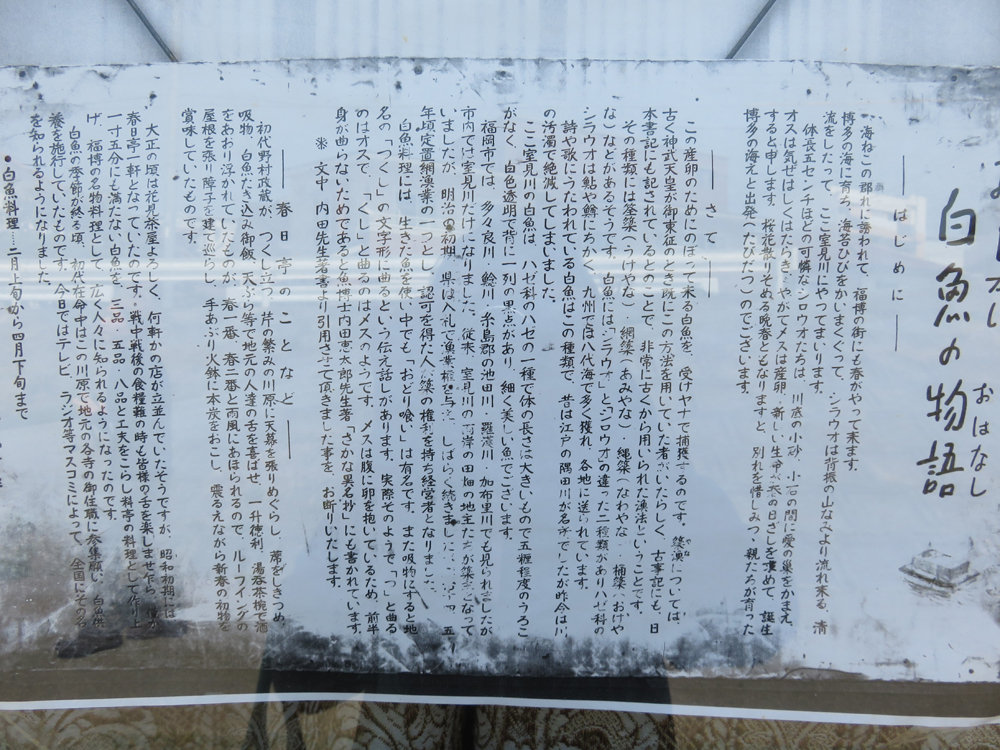 白魚の物語
おはなし
――はじめに――
海ねこの群れに誘われて、福博の街にも春がやって来ます。
博多の海に育ち、海苔ひびをかしまくぐって、シラウオは背振の山なみより流れ来る、清
流をしたって、ここ室見川にやってまいります。
体長五センチほどの可憐なシロウオたちは、川底の小砂、小石の間に愛の巣をかまえ、
オスは気ぜはしくはたらき、やがてメスは産卵、新しい生命が春の日ざしを求めて、誕生
すると申します。桜花散りそめる晩春ともなりますと、別れを惜しみつつ親たちが育った
博多の海えと出発(たびだたつ)のでございます。
――さて――
この産卵のためにのぼって来る白魚を、受けヤナで捕獲するのです。簗漁については、
古く神武天皇が御東征のとき既にこの方法を用いていた者がいたらしく、古事記にも、日
本書記にも記されているとのことで、非常に古くから用いられた漁法ということです。
その種類には筌簗(うけやな)・網簗(あみやな)・縄簗(なわやな)・桶簗(おけや
な)などがあるそうです。白魚には「シラウオ」と「シロウオ」の違った二種類がありハゼ科の
シラウオは鮎や鱒にちかく、九州では八代海で多く獲れ、各地に送られています。
詩や歌にうたわれている白魚はこの種類で、昔は江戸の隅田川が名所でしたが昨今は川
の汚濁で絶滅してしまいました。
ここ室見川の白魚は、ハゼ科のハゼの一種で体の長さは大きいもので五糎程度のうろこ
がなく、白色透明で背に一列の黒点があり、細く美しい魚でございます。
福岡市では、多々良川、鯰川、糸島郡の池田川・羅漢川・加布里川でも見られましたが
市内では室見川だけになりました。従来、室見川の両岸の田畑の地主たちが簗主となって
いましたが、明治の初期、県は入札で漁業権を与え、しばらく続きました
年頃定置網漁業の一つとし、認可を得た人が簗の権利を持ち経営者となりました。
白魚料理には、生きた魚を使い中でも「おどり喰い」は有名です。また吸物にすると地
名の「つくし」の文字形に曲るという伝え話しがあります。実際そのようで「つ」と曲る
のはオスで、「く」「し」と曲るのはメスのようです。メスは腹に卵を抱いているため、前半
身が曲らないためであると魚博士内田恵太郎先生著「さかな異名抄」にも書かれています。
※ 文中、内田先生著書より引用させて頂きました事を、お断りいたします。
――春日亭のことなど――
初代野村政蔵が、つくし立つ芹の繁みの川原に天幕を張りめぐらし、蓆をしきつめ、
吸物、白魚たき込み御飯、天ぷら等で地元の人達の舌を喜ばせ、一升徳利、湯呑茶椀で酒
をあおり浮かれていたものが、春一番、春二番と雨風にあほられるので、ルーフイングの
屋根を張り障子を建て巡らし、手あぶり火鉢に木炭をおこし、震るえながら新春の初物を
賞味していたものです。
大正の頃は花見茶屋よろしく、何軒かの店が立並んでいたそうですが、昭和初期には
春日亭一軒となっていたのです。戦中戦後の食糧難の時も皆様の舌を楽しませ乍ら、僅か
一寸五分にも満たない白魚を、三品・五品・八品と工夫をこらし料亭の料理として作り上
げ、福博の名物料理として、広く人々に知られるようになったのです。
白魚の季節が終る頃、初代在命中はこの川原で地元の各寺の御住職に参集願い、白魚供
養を施行していたものです。今日ではテレビ、ラジオ等マスコミによって、全国にその名
を知られるようになりました。
●白魚料理…二月上旬から四月下旬まで